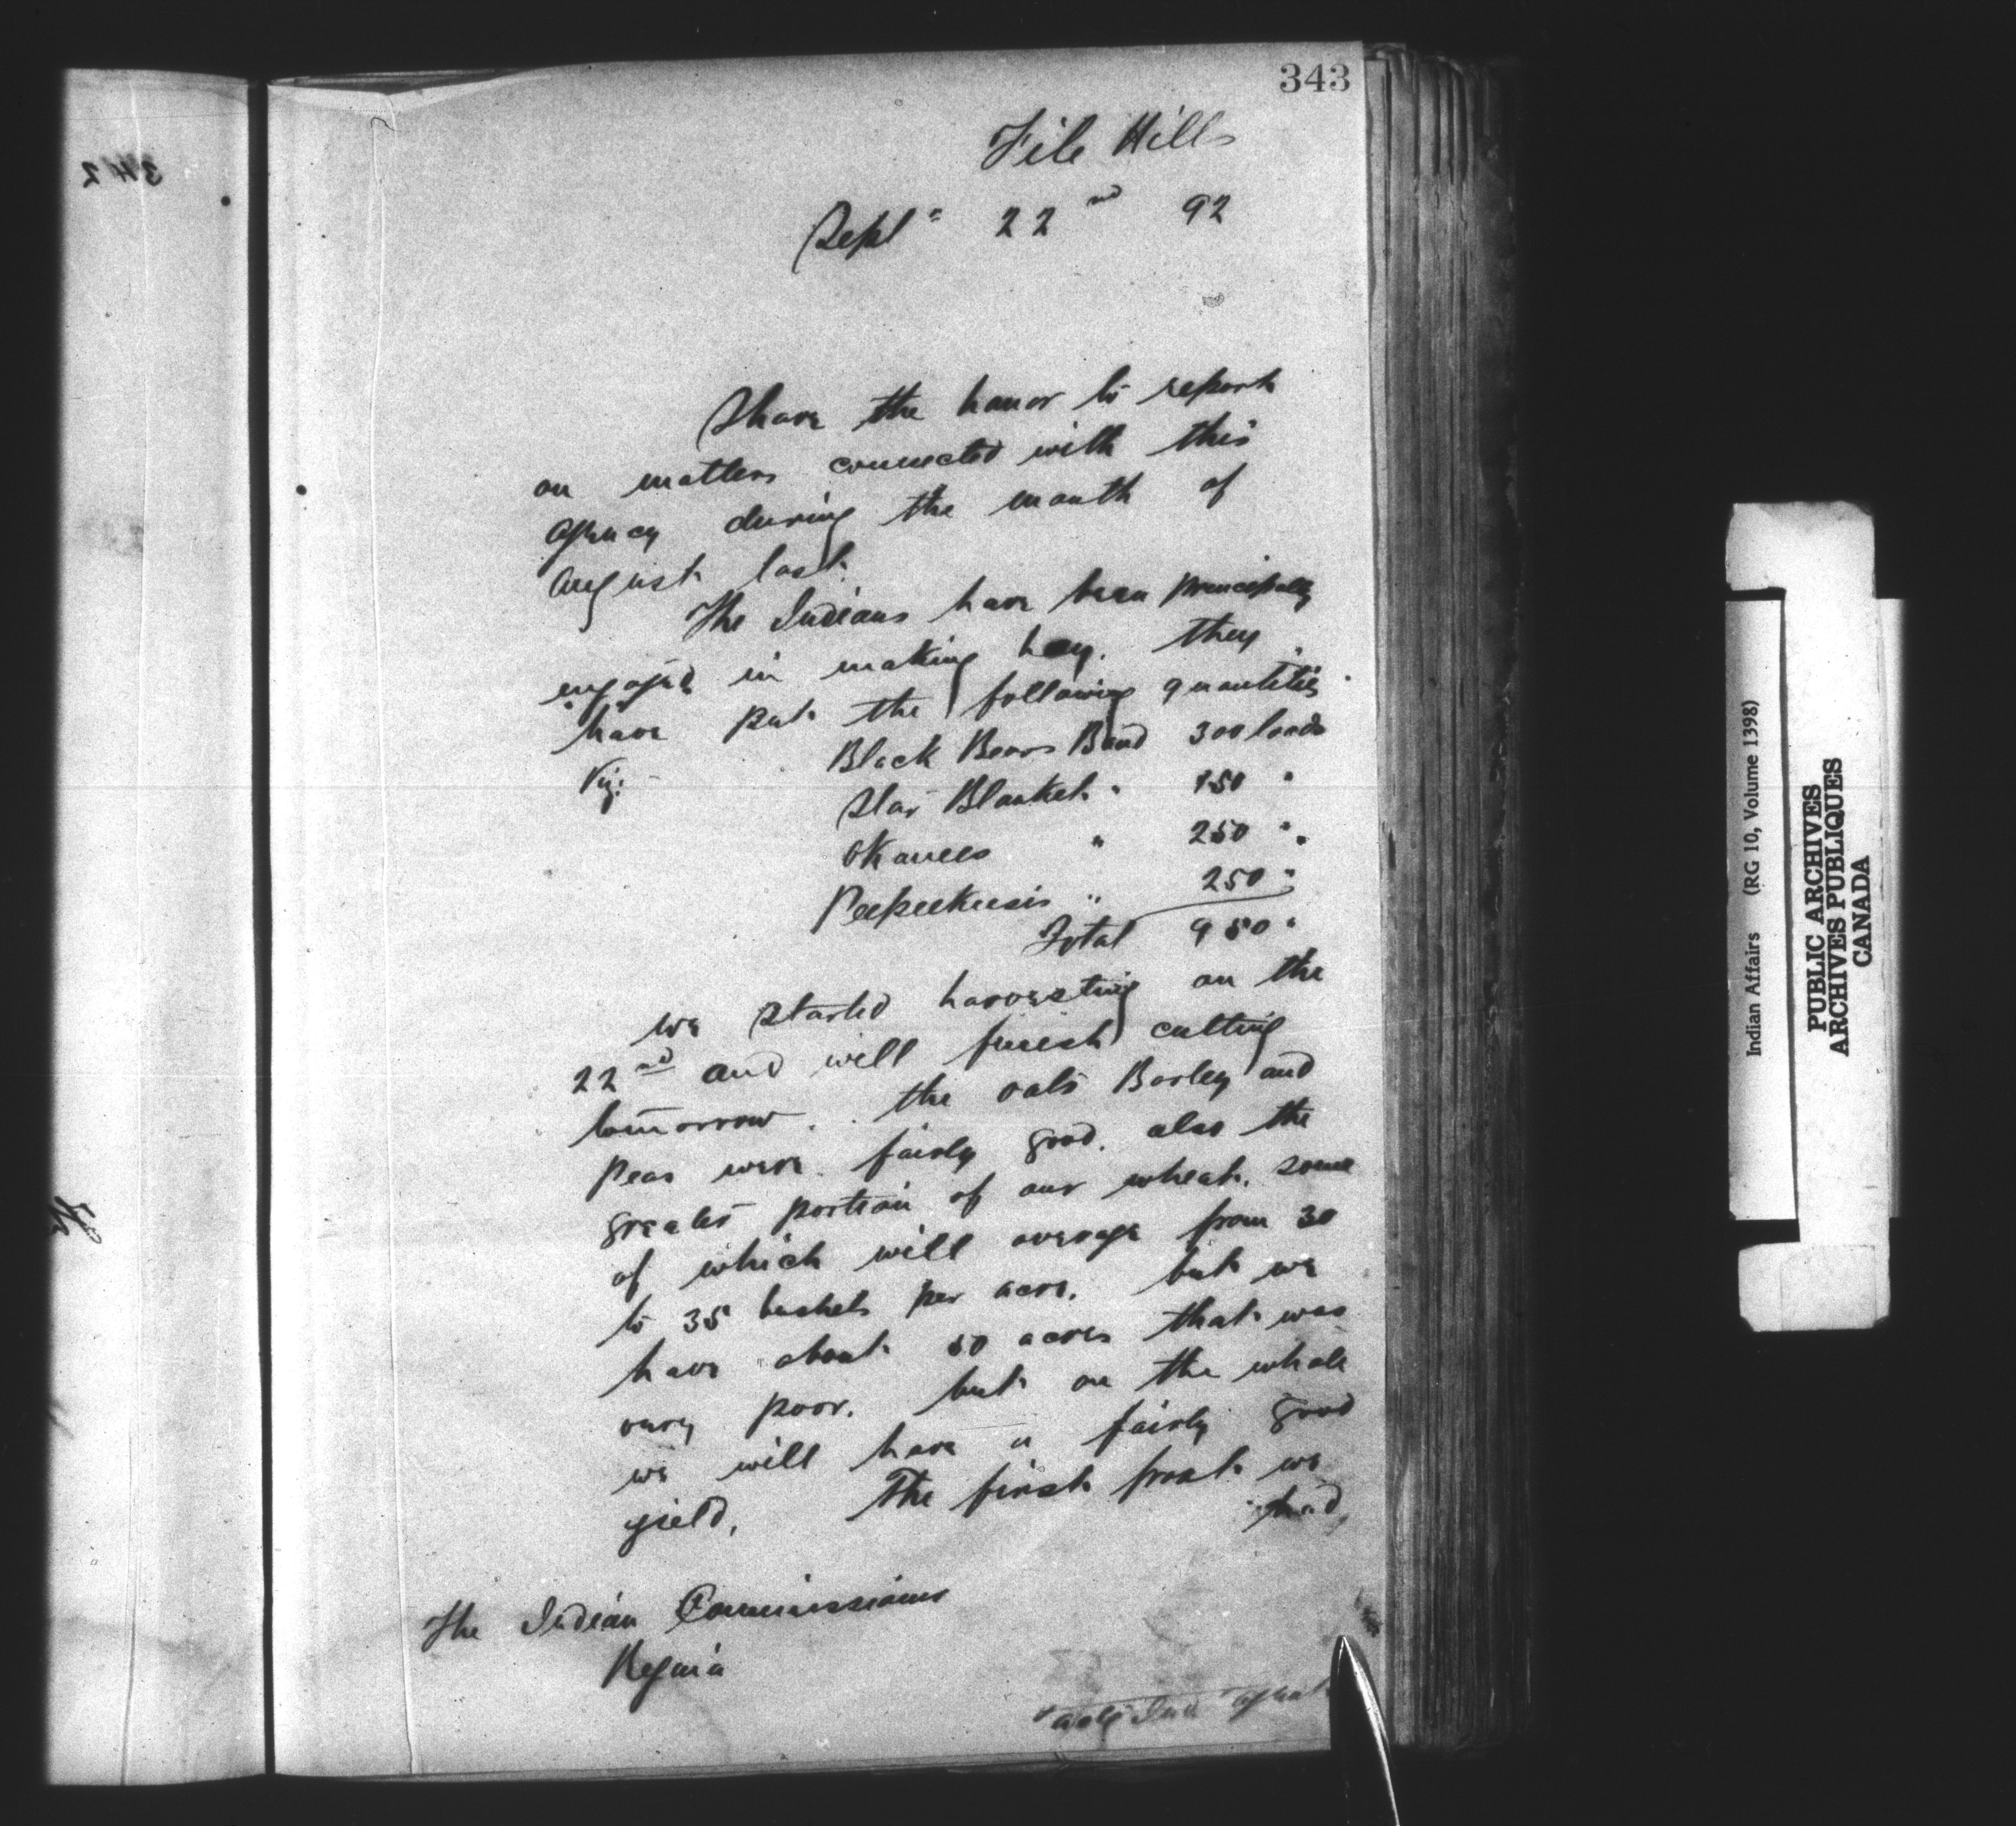 343
File Hills
Sept 22nd 92
I have the honor to report
on matters connected with this
Agency during the month of
August last.
The Indians have been principally
engaged in making hay. they
have put the following quantities
Viz:
Black Bears Band 300 loads
Star Blanket " 150 "
Okanees " 250 "
Peepeekeesis " 250 "
Total 950 "
we started harvesting on the
22nd and will finish cutting
tomorrow. the oats Barley and
Peas were fairly good. also the
greater portion of our wheat. some
of which will average from 30
to 35 bushels per acre. but we
have about 50 acres that was
very poor. but on the whole
we will have a fairly good
yield. The first frost we
had
The Indian Commissioner
Regina
Actg Ind Agent
342
Indian Affairs (RG 10, Volume 1398)
PUBLIC ARCHIVES
ARCHIVES PUBLIQUES
CANADA